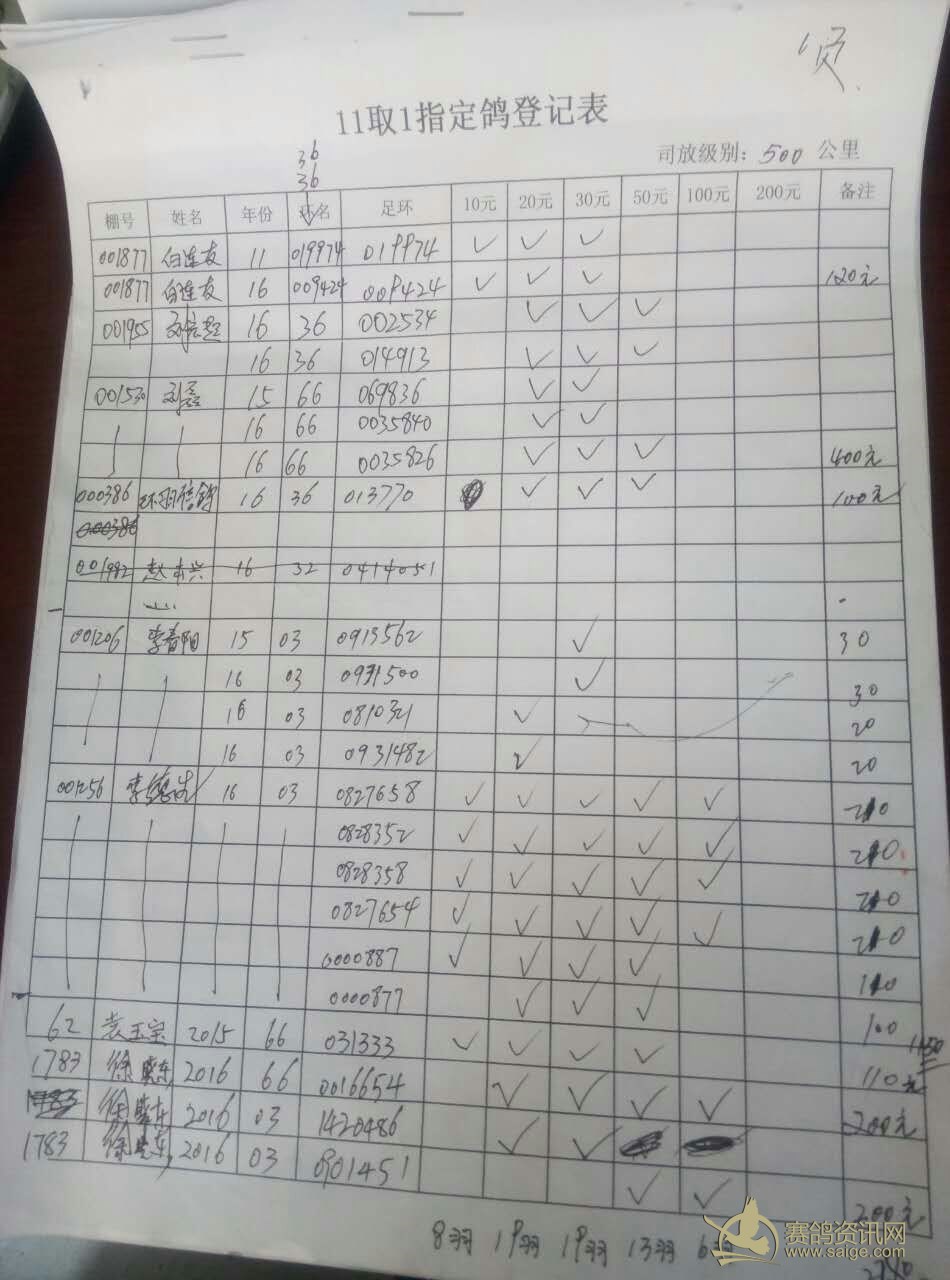 贤
11取1指定鸽登记表
36
36
司放级别: 500 公里
棚号 姓名 年份 环名 足环 10元 20元 30元 50元 100元 200元 备注
001877 白连友 11 019974 019974 ✓ ✓ ✓
001877 白连友 16 009424 009424 ✓ ✓ ✓ 120元
001955 16 36 002534 ✓ ✓ ✓
16 36 014913 ✓ ✓ ✓
001530 刘鑫 15 66 069836 ✓ ✓
16 66 0035840 ✓ ✓
16 66 0035826 ✓ ✓ ✓ 400元
000386 环羽信鸽 16 36 013770 ✓ ✓ ✓ 100元
000386
001982 赵本兴 16 32 0414051
001206 李春阳 15 03 0913562 ✓ 30
16 03 0931500 ✓ 30
16 03 0810321 ✓ 20
16 03 0931482 ✓ 20
001256 16 03 0827658 ✓ ✓ ✓ ✓ ✓ 210
0828352 ✓ ✓ ✓ ✓ ✓ 210
0828358 ✓ ✓ ✓ ✓ ✓ 210
0827654 ✓ ✓ ✓ ✓ ✓ 210
0000887 ✓ ✓ ✓ ✓ 110
0000877 ✓ ✓ ✓ 100
62 袁玉宝 2015 66 031333 ✓ ✓ ✓ ✓ 110元
1783 2016 66 0016654 ✓ ✓ ✓ ✓ 200元
1783 2016 03 1420486 ✓ ✓
1783 2016 03 0901451 ✓ ✓ 200元
8羽 19羽 19羽 13羽 6羽
赛鸽资讯网
www.saige.com